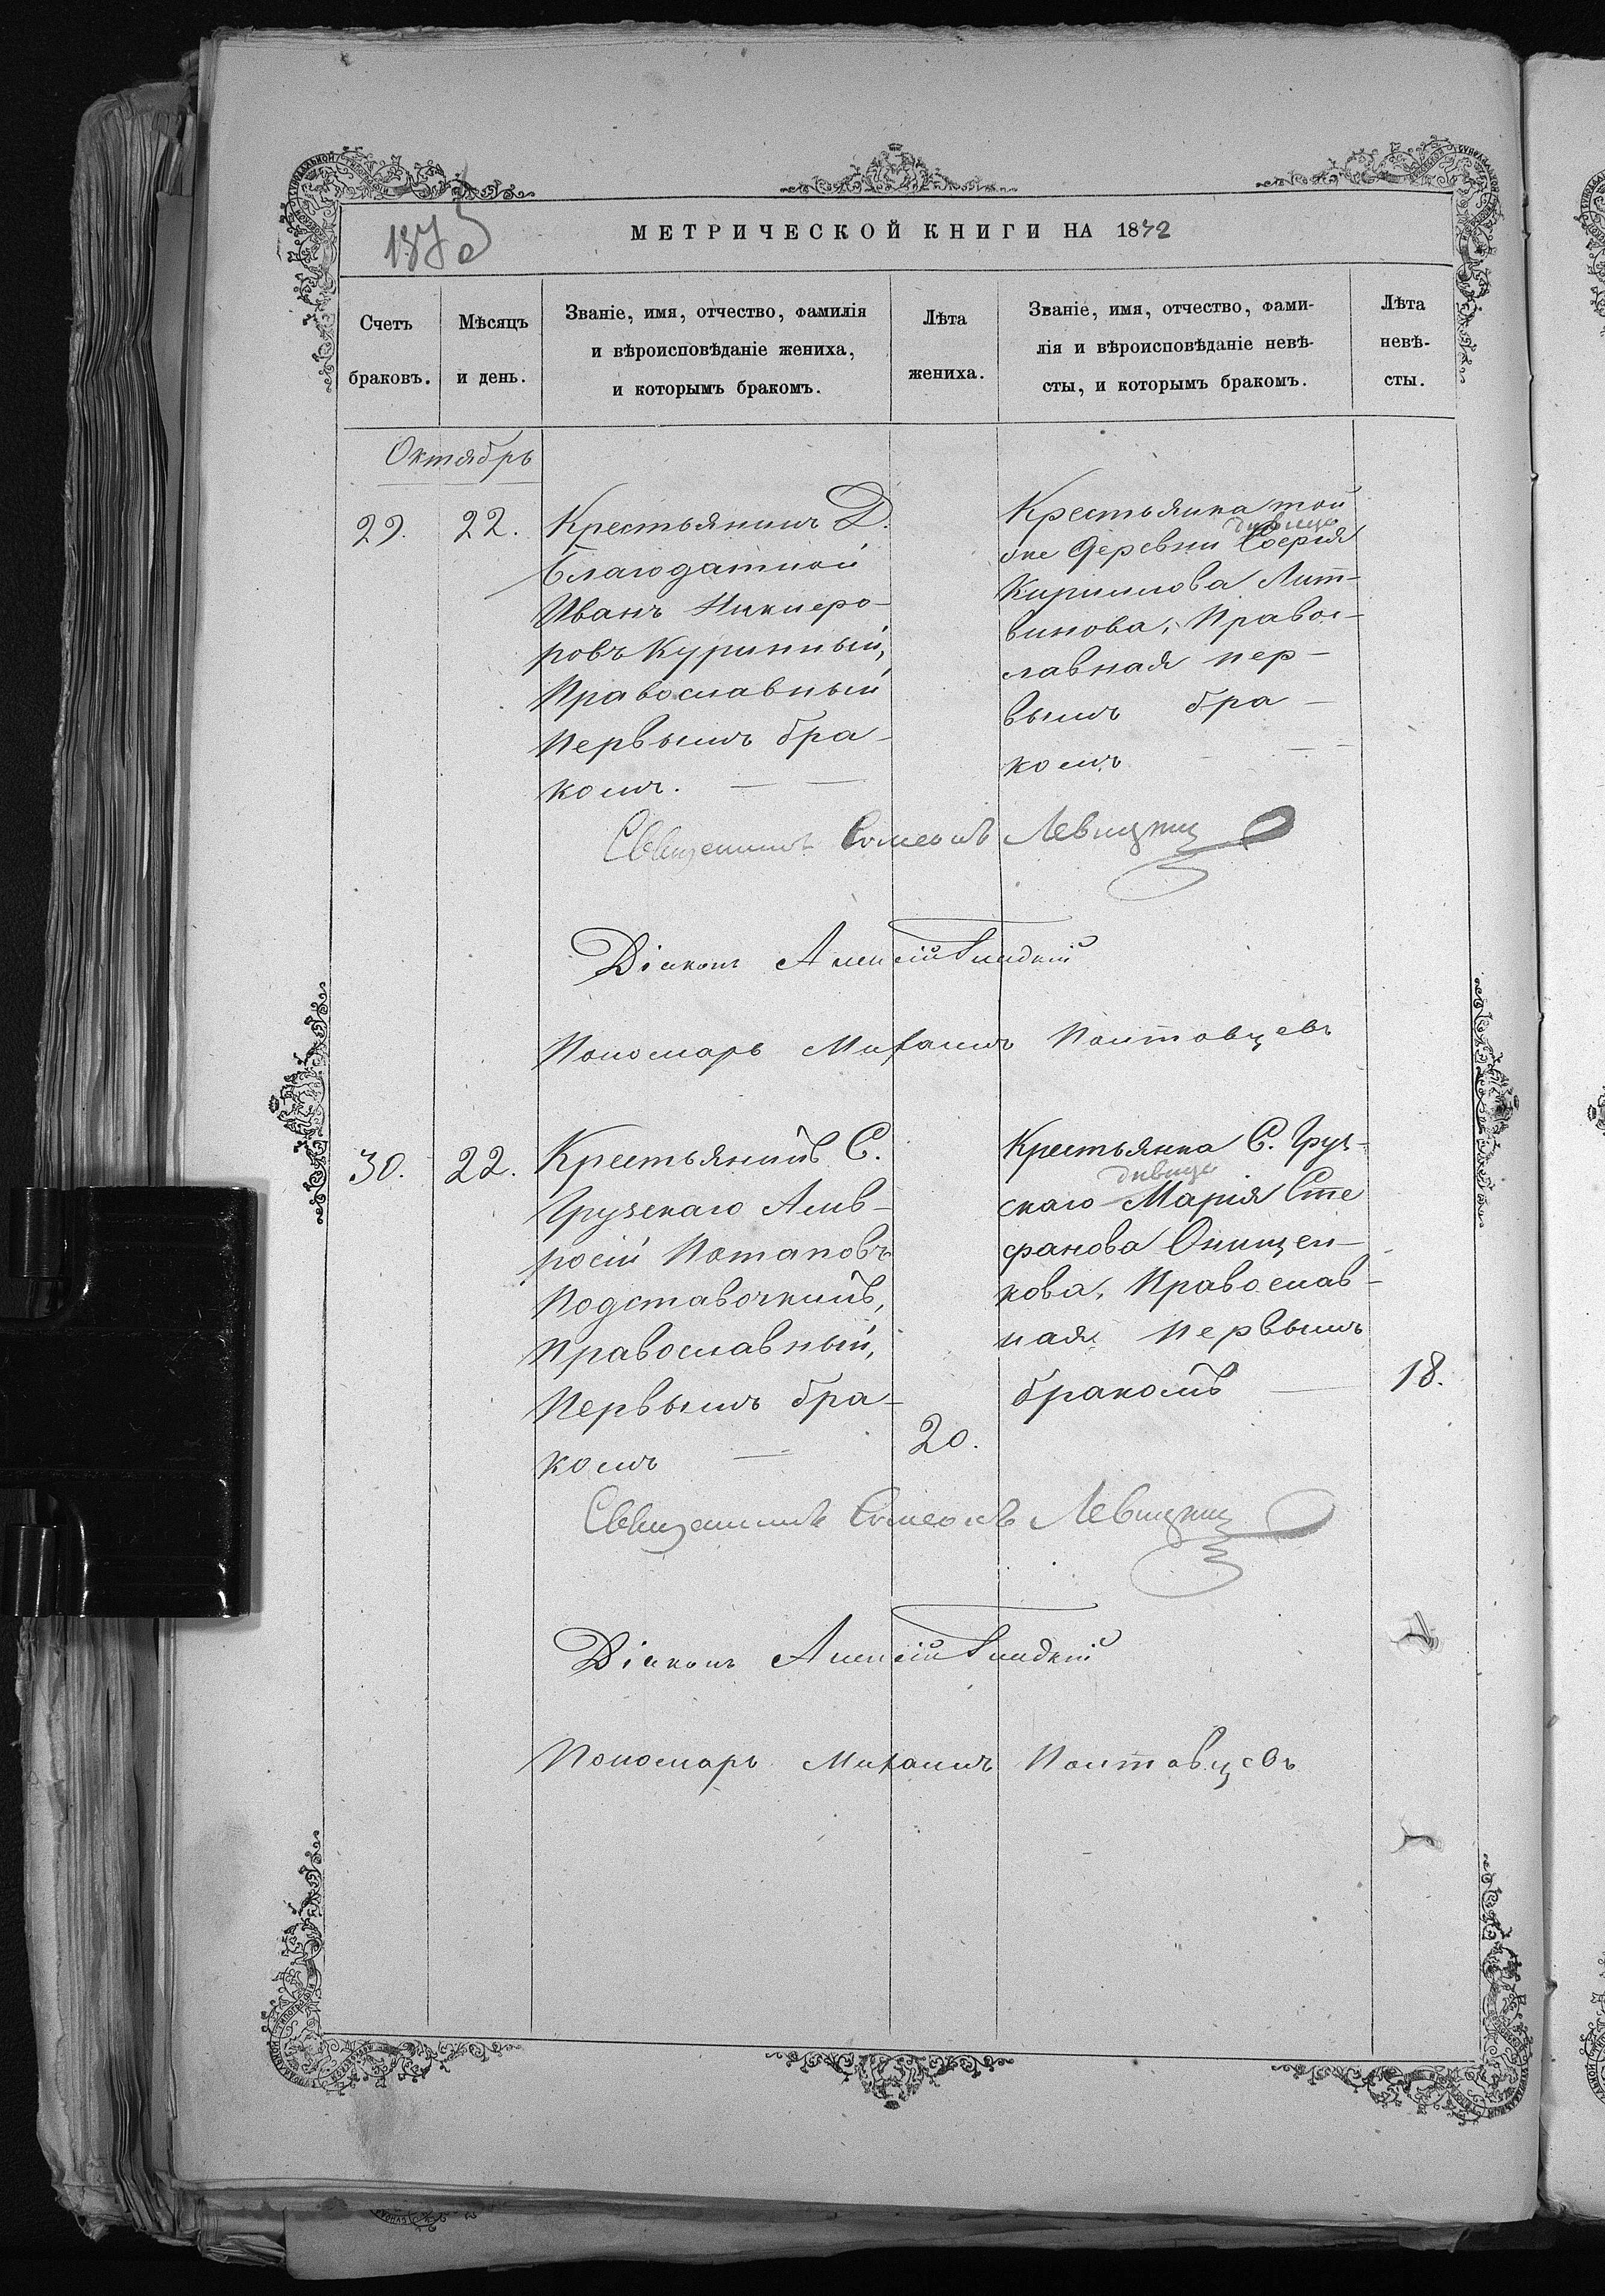 МЕТРИЧЕСКОЙ КНИГИ НА 1872
Счетъ браковъ.
Мѣсяцъ и день.
Званіе, имя, отчество, фамилія
и вѣроисповѣданіе жениха,
и которымъ бракомъ.
Лѣта жениха.
Званіе, имя, отчество, фами-
лія и вѣроисповѣданіе невѣ-
сты, и которымъ бракомъ.
Лѣта невѣ-
сты.
Октябрь
29. 22.
Крестьянинъ Д.
Благодатной
Иванъ Никифо-
ровъ Куринный,
Православный
Первымъ бра-
комъ.
Крестьянка той
дѣвица
же деревни Софія
Кириллова Лит-
винова, Правос-
лавная пер-
вымъ бра-
комъ
Священникъ Симеонъ Левицкій
Діаконъ Алексій
Пономарь Михаилъ Полтавцевъ
30. 22.
Крестьянинъ С.
Грузскаго Амв-
росій Потаповъ
Подставочкинъ,
Православный,
Первымъ бра-
комъ
20.
Крестьянка С. Груз-
дѣвица
скаго Марія Сте
фанова Онищен-
кова, Православ-
ная Первымъ
бракомъ
18.
Священникъ Симеонъ Левицкій
Діаконъ Алексій
Пономарь Михаилъ Полтавцевъ